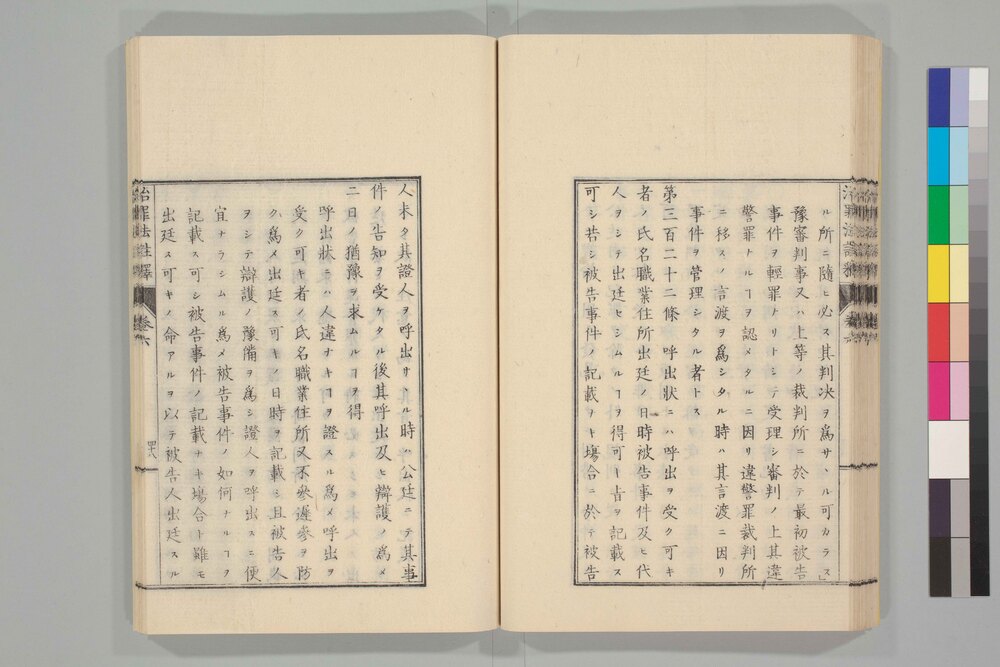 ル所ニ隨ヒ必ス其判决ヲ爲サヽル可カラス」
豫審判事又ハ上等ノ裁判所ニ於テ最初被告
事件ヲ輕罪ナリトシテ受理シ審判ノ上其違
警罪ナルヿヲ認メタルニ因リ違警罪裁判所
ニ移スノ言渡ヲ爲シタル時ハ其言渡ニ因リ
事件ヲ管理シタル者トス
第三百二十二條 呼出狀ニハ呼出ヲ受ク可キ
者ノ氏名職業住所出廷ノ日時被告事件及ヒ代
人ヲシテ出廷セシムルヿヲ得可キ旨ヲ記載ス
可シ若シ被告事件ノ記載ナキ塲合ニ於テ被告
人未タ其證人ヲ呼出サヽル時ハ公廷ニテ其事
件ノ告知ヲ受ケタル後其呼出及ヒ辯護ノ爲メ
二日ノ猶豫ヲ求ムルヿヲ得
呼出狀ニハ人違ナキヿヲ證スル爲メ呼出ヲ
受ク可キ者ノ氏名職業住所又不參遲參ヲ防
ク爲メ出廷ス可キノ日時ヲ記載シ且被告人
ヲシテ辯護ノ豫備ヲ爲シ證人ヲ呼出スニ便
宜ナラシムル爲メ被告事件ノ如何ナルヿヲ
記載ス可シ被告事件ノ記載ナキ塲合ト雖モ
出廷ス可キノ命アルヲ以テ被告人出廷スル
治罪法註釋 卷六